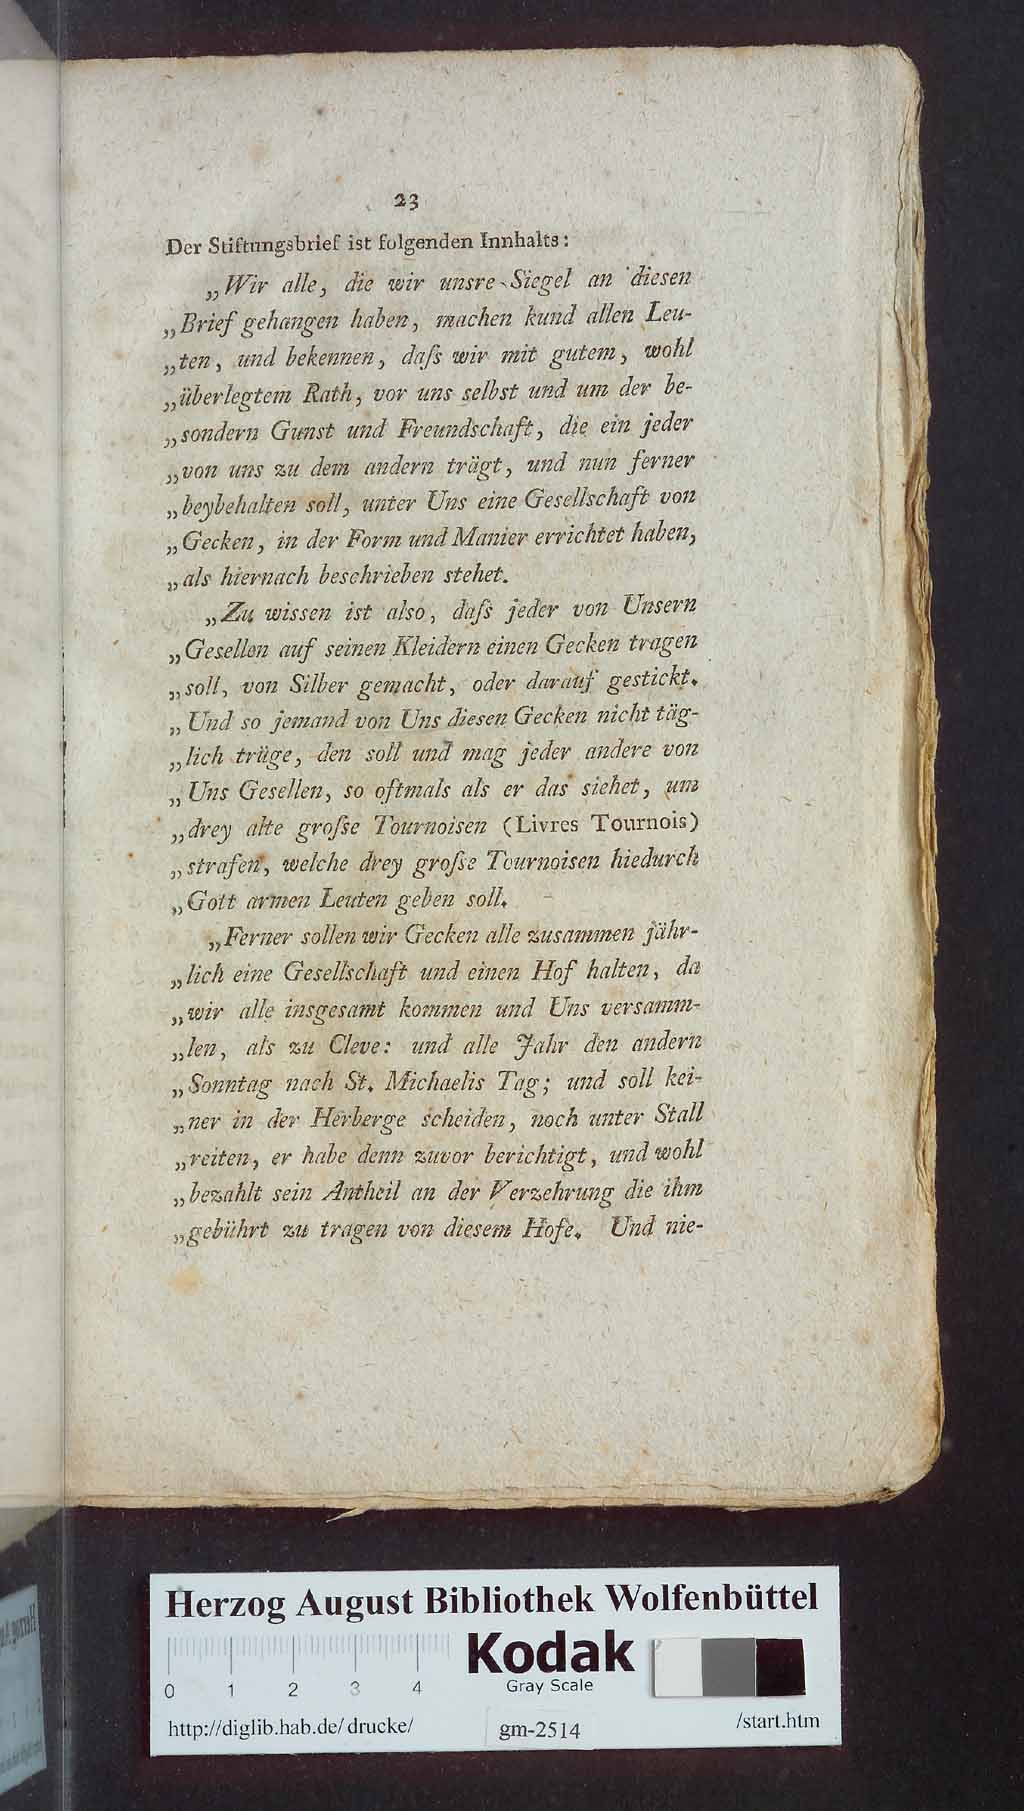 23
Der Stiftungsbrief ist folgenden Innhalts:
„Wir alle, die wir unsre Siegel an diesen
„Brief gehangen haben, machen kund allen Leu-
„ten, und bekennen, daſs wir mit gutem, wohl
„überlegtem Rath, vor uns selbst und um der be-
„sondern Gunst und Freundschaft, die ein jeder
„von uns zu dem andern trägt, und nun ferner
„beybehalten soll, unter Uns eine Gesellschaft von
„Gecken, in der Form und Manier errichtet haben,
„als hiernach beschrieben stehet.
„Zu wissen ist also, daſs jeder von Unsern
„Gesellen auf seinen Kleidern einen Gecken tragen
„soll, von Silber gemacht, oder darauf gestickt.
„Und so jemand von Uns diesen Gecken nicht täg-
„lich trüge, den soll und mag jeder andere von
„Uns Gesellen, so oftmals als er das siehet, um
„drey alte groſse Tournoisen (Livres Tournois)
„strafen, welche drey groſse Tournoisen hiedurch
„Gott armen Leuten geben soll.
„Ferner sollen wir Gecken alle zusammen jähr-
„lich eine Gesellschaft und einen Hof halten, da
„wir alle insgesamt kommen und Uns versamm-
„len, als zu Cleve: und alle Jahr den andern
„Sonntag nach St. Michaelis Tag; und soll kei-
„ner in der Herberge scheiden, noch unter Stall
„reiten, er habe denn zuvor berichtigt, und wohl
„bezahlt sein Antheil an der Verzehrung die ihm
„gebührt zu tragen von diesem Hofe. Und nie-
Herzog August Bibliothek Wolfenbüttel
Kodak
Gray Scale
0 1 2 3 4
http://diglib.hab.de/drucke/ gm-2514 /start.htm